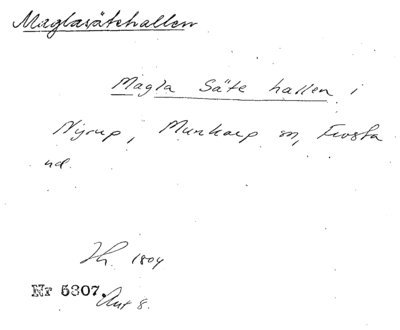 Maglasätehallen
Magla Säte hallen i
Nyrup, Munkarp sn, Frosta
hd.
Th. 1804
Nr 5307. Ant 8.